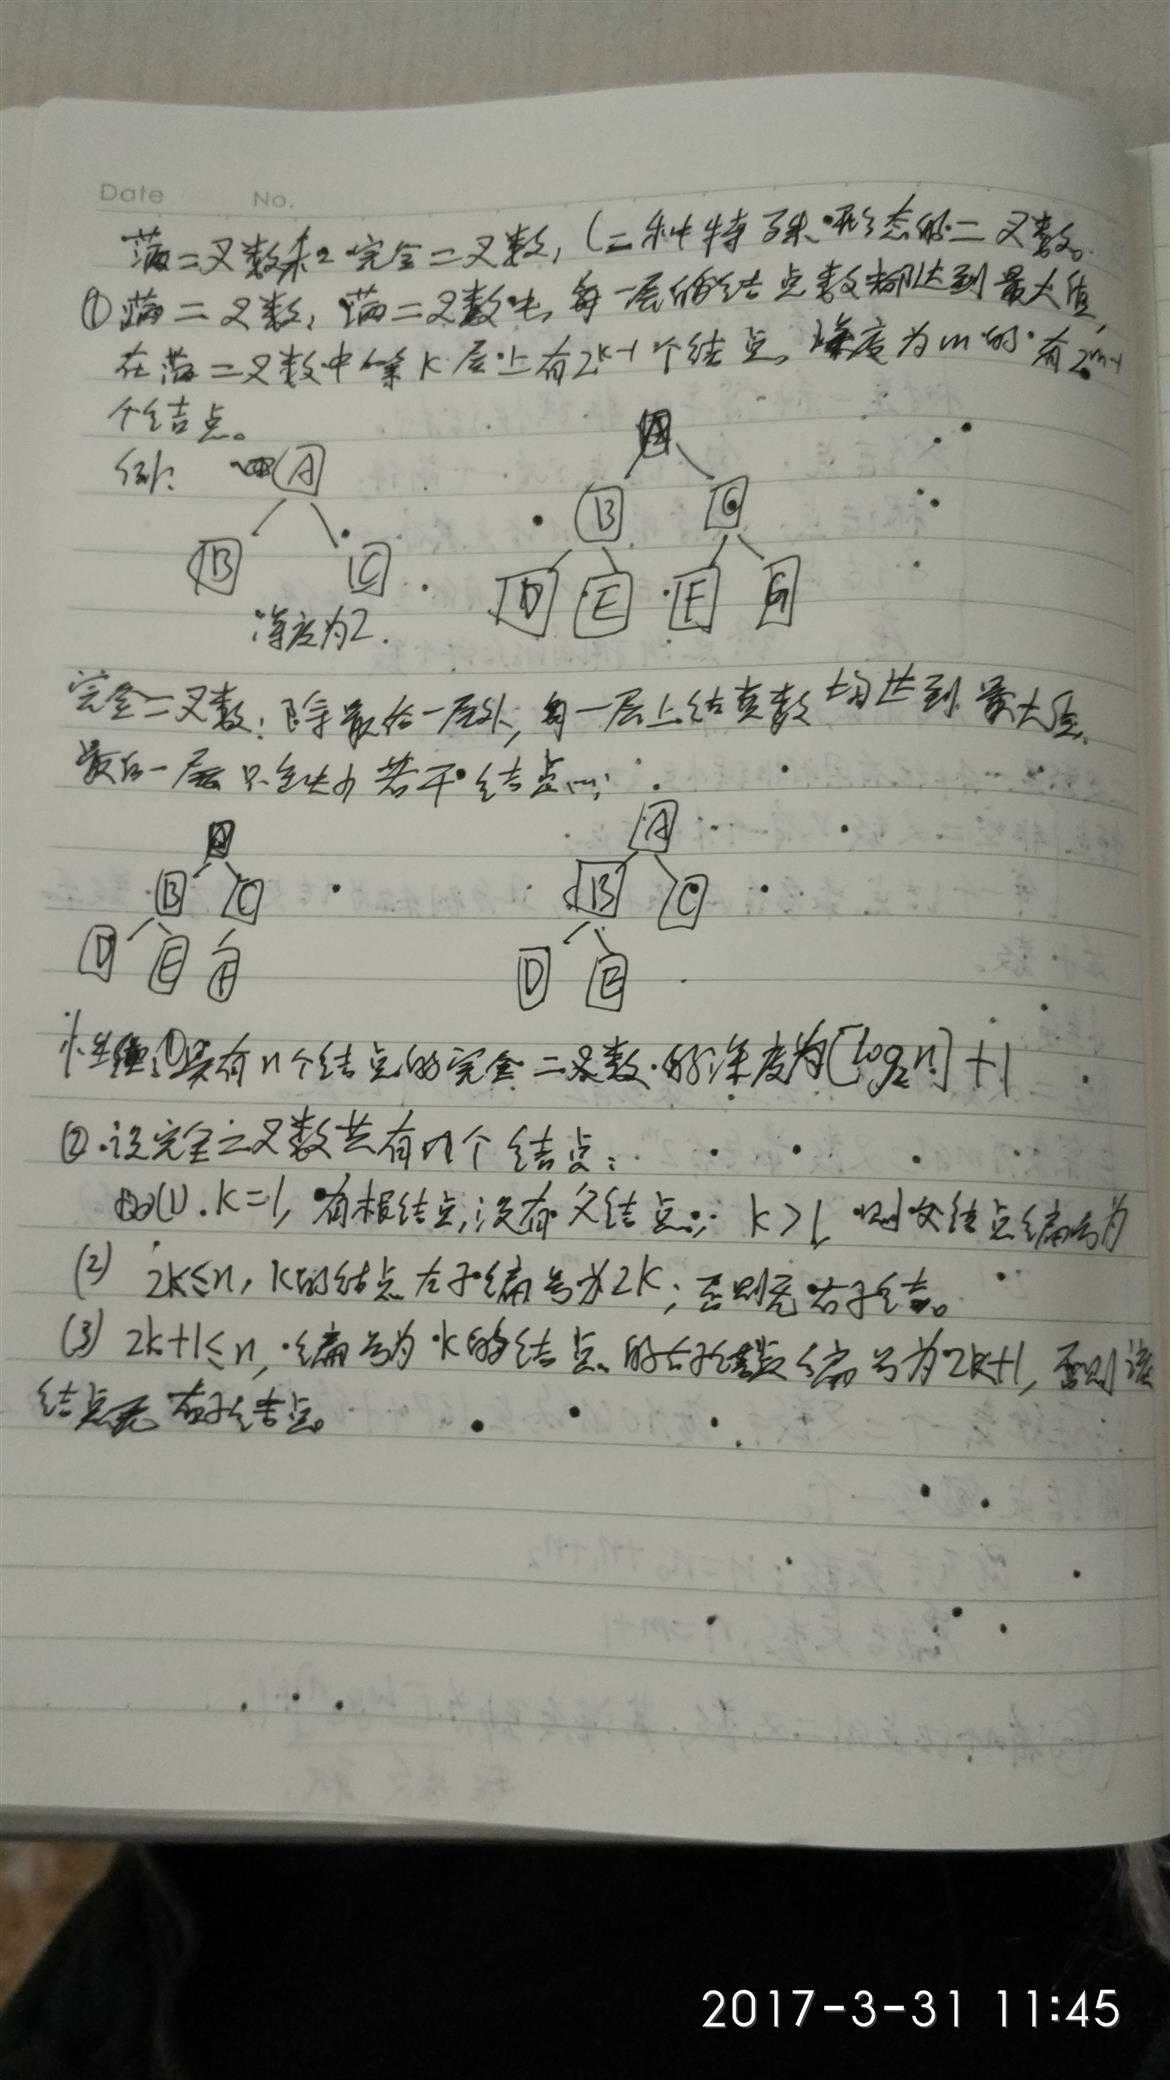 Date No.
满二叉数和完全二叉数，(二种特殊形态的二叉数。
①满二叉数：满二叉数中，每一层的结点数都达到最大值，
在满二叉数中第k层上有2^{k-1}个结点。深度为m的有2^{m}-1
个结点。
例： A A
B C B C
D E F G
深度为2.
完全二叉数：除最后一层外，每一层上结点数均达到最大值、
最后一层只缺少若干结点
A A
B C B C
D E F D E
性质①具有n个结点的完全二叉数的深度为[log₂n]+1
②设完全二叉数共有n个结点：
(1). k=1, 有根结点，没有父结点；k>1, 则父结点编号为
(2) 2k≤n, k的结点左子编号为2k；否则无右子结。
(3) 2k+1≤n, 编号为k的结点的右子结数编号为2k+1，否则该
结点无右子结点。
2017-3-31 11:45